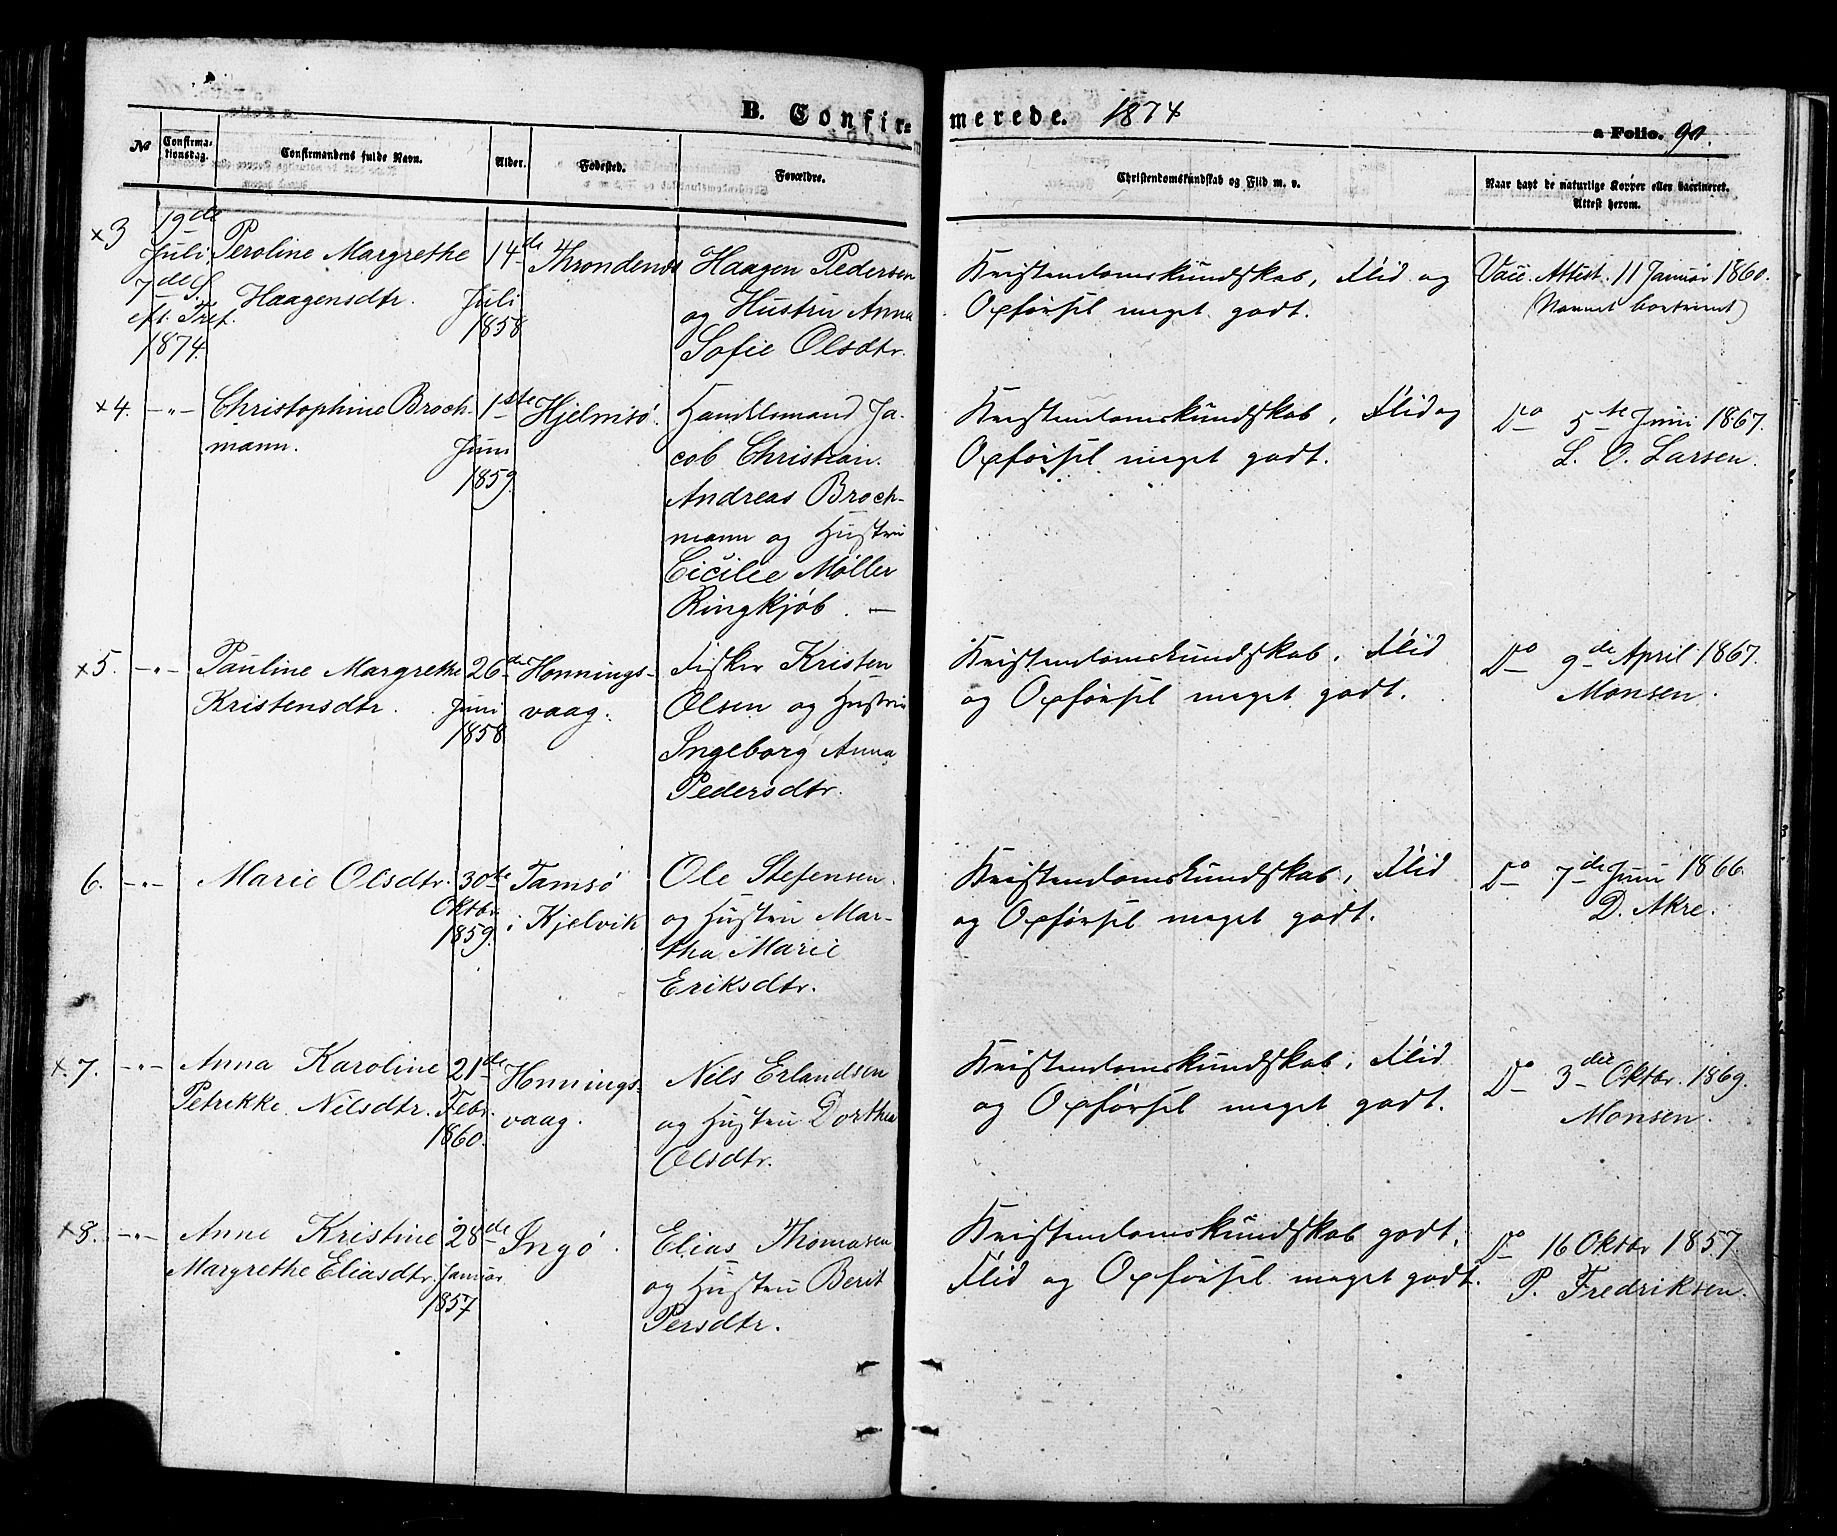 B. Confir= merede. 1874
a Folio. 90.
No
Confirma-
tionsdag.
Confirmandens fulde Navn.
Alder.
Fødested.
Forældre.
Christendomskundskab og Flid m. v.
Naar havt de naturlige Kopper eller vaccineret.
Attest herom.
x3
19de
Juli
7de S.
eft. Tref.
1874.
Peroline Margrethe
Haagensdtr.
14de
Juli
1858
Throndenæs
Haagen Pedersen
og Hustru Anna
Sofie Olsdtr.
Kristendomskundskab, Flid og
Opførsel meget godt.
Vacc. Attest. 11 Januar 1860.
(Navnet bortrevet)
x4.
-"-
Christophine Broch-
mann.
1ste
Juni
1859.
Hjelmsø.
Handelsmand Ja-
cob Christian
Andreas Broch-
mann og Hustru
Cicilie Møller
Ringkjøb. —
Kristendomskundskab, Flid og
Opførsel meget godt.
Do 5te Juni 1867.
L. O. Larsen.
x5.
-"-
Pauline Margrethe
Kristensdtr.
26de
Juni
1858
Honnings-
vaag.
Fisker Kristen
Olsen og Hustru
Ingeborg Anna
Pedersdtr.
Kristendomskundskab, Flid
og Opførsel meget godt.
Do 9de April 1867.
Monsen.
6.
-"-
Marie Olsdtr.
30de
Oktbr.
1859.
Tamsø
i Kjelvik
Ole Stefensen
og Hustru Mar-
tha Marie
Eriksdtr.
Kristendomskundskab, Flid
og Opførsel meget godt.
Do 7de Juni 1866.
D. Akre.
x7.
-"-
Anna Karoline
Petrikke Nilsdtr.
21de
Febr.
1860.
Honnings-
vaag.
Nils Erlandsen
og Hustru Dorthea
Olsdtr.
Kristendomskundskab, Flid
og Opførsel meget godt.
Do 3die Oktbr. 1869.
Monsen.
x8.
-"-
Anne Kristine
Margrethe Eliasdtr.
28de
Januar
1857
Ingø.
Elias Thomasen
og Hustru Berit
Persdtr.
Kristendomskundskab godt,
Flid og Opførsel meget godt.
Do 16 Oktbr 1857.
P. Fredriksen.